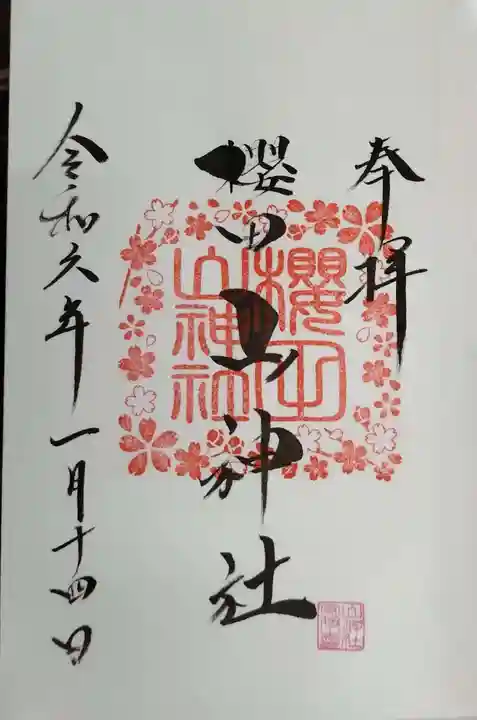 奉拝
櫻田山神社
櫻田
山神社
令和六年一月十四日